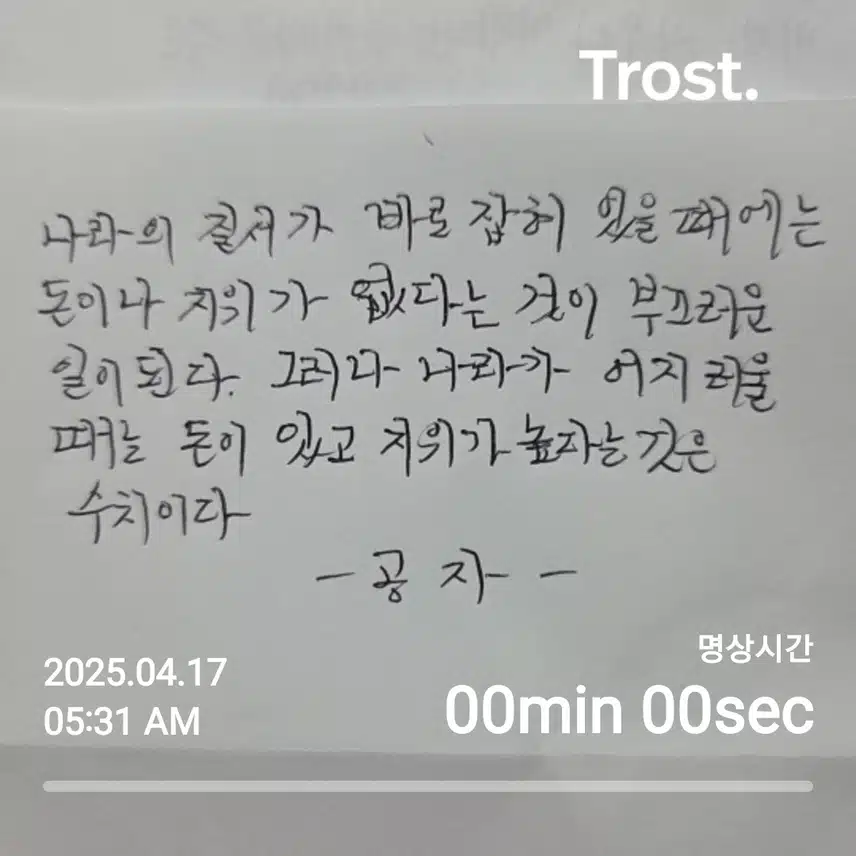 Trost.
나라의 질서가 바로 잡혀 있을 때에는
돈이나 지위가 없다는 것이 부끄러운
일이 된다. 그러나 나라가 어지러울
때는 돈이 있고 지위가 높다는 것은
수치이다
- 공 자 -
명상시간
2025.04.17
00min 00sec
05:31 AM